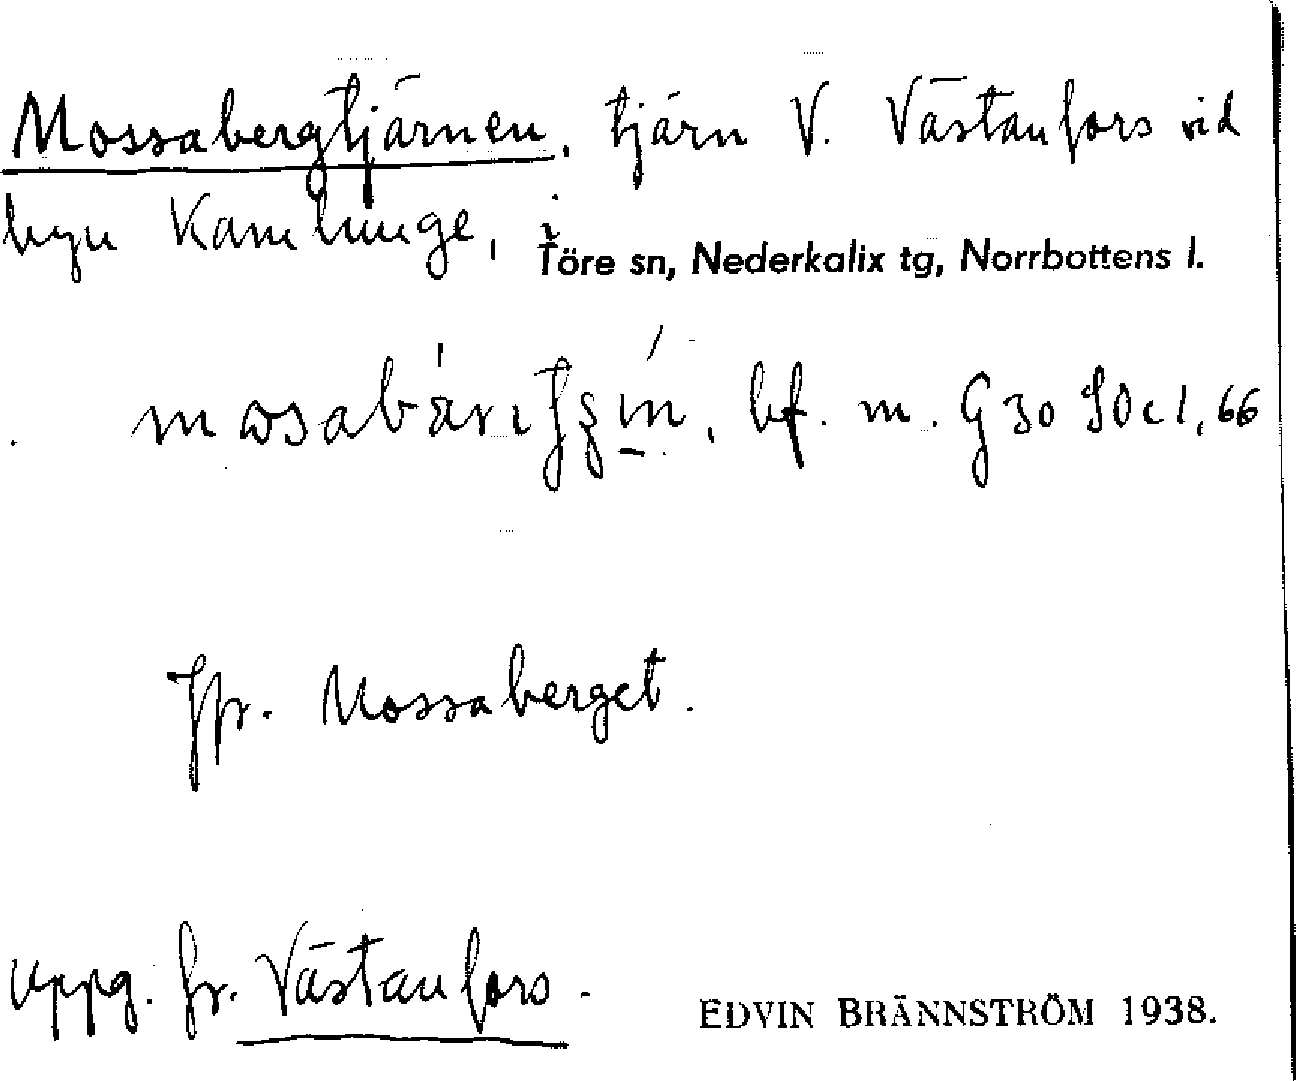 Mossabergtjärnen, tjärn V. Västanfors vid
byn Kamlunge, i
Töre sn, Nederkalix tg, Norrbottens l.
bf. m. G 30
Jfr. Mossaberget.
uppg. fr. Västanfors.
EDVIN BRÄNNSTRÖM 1938.